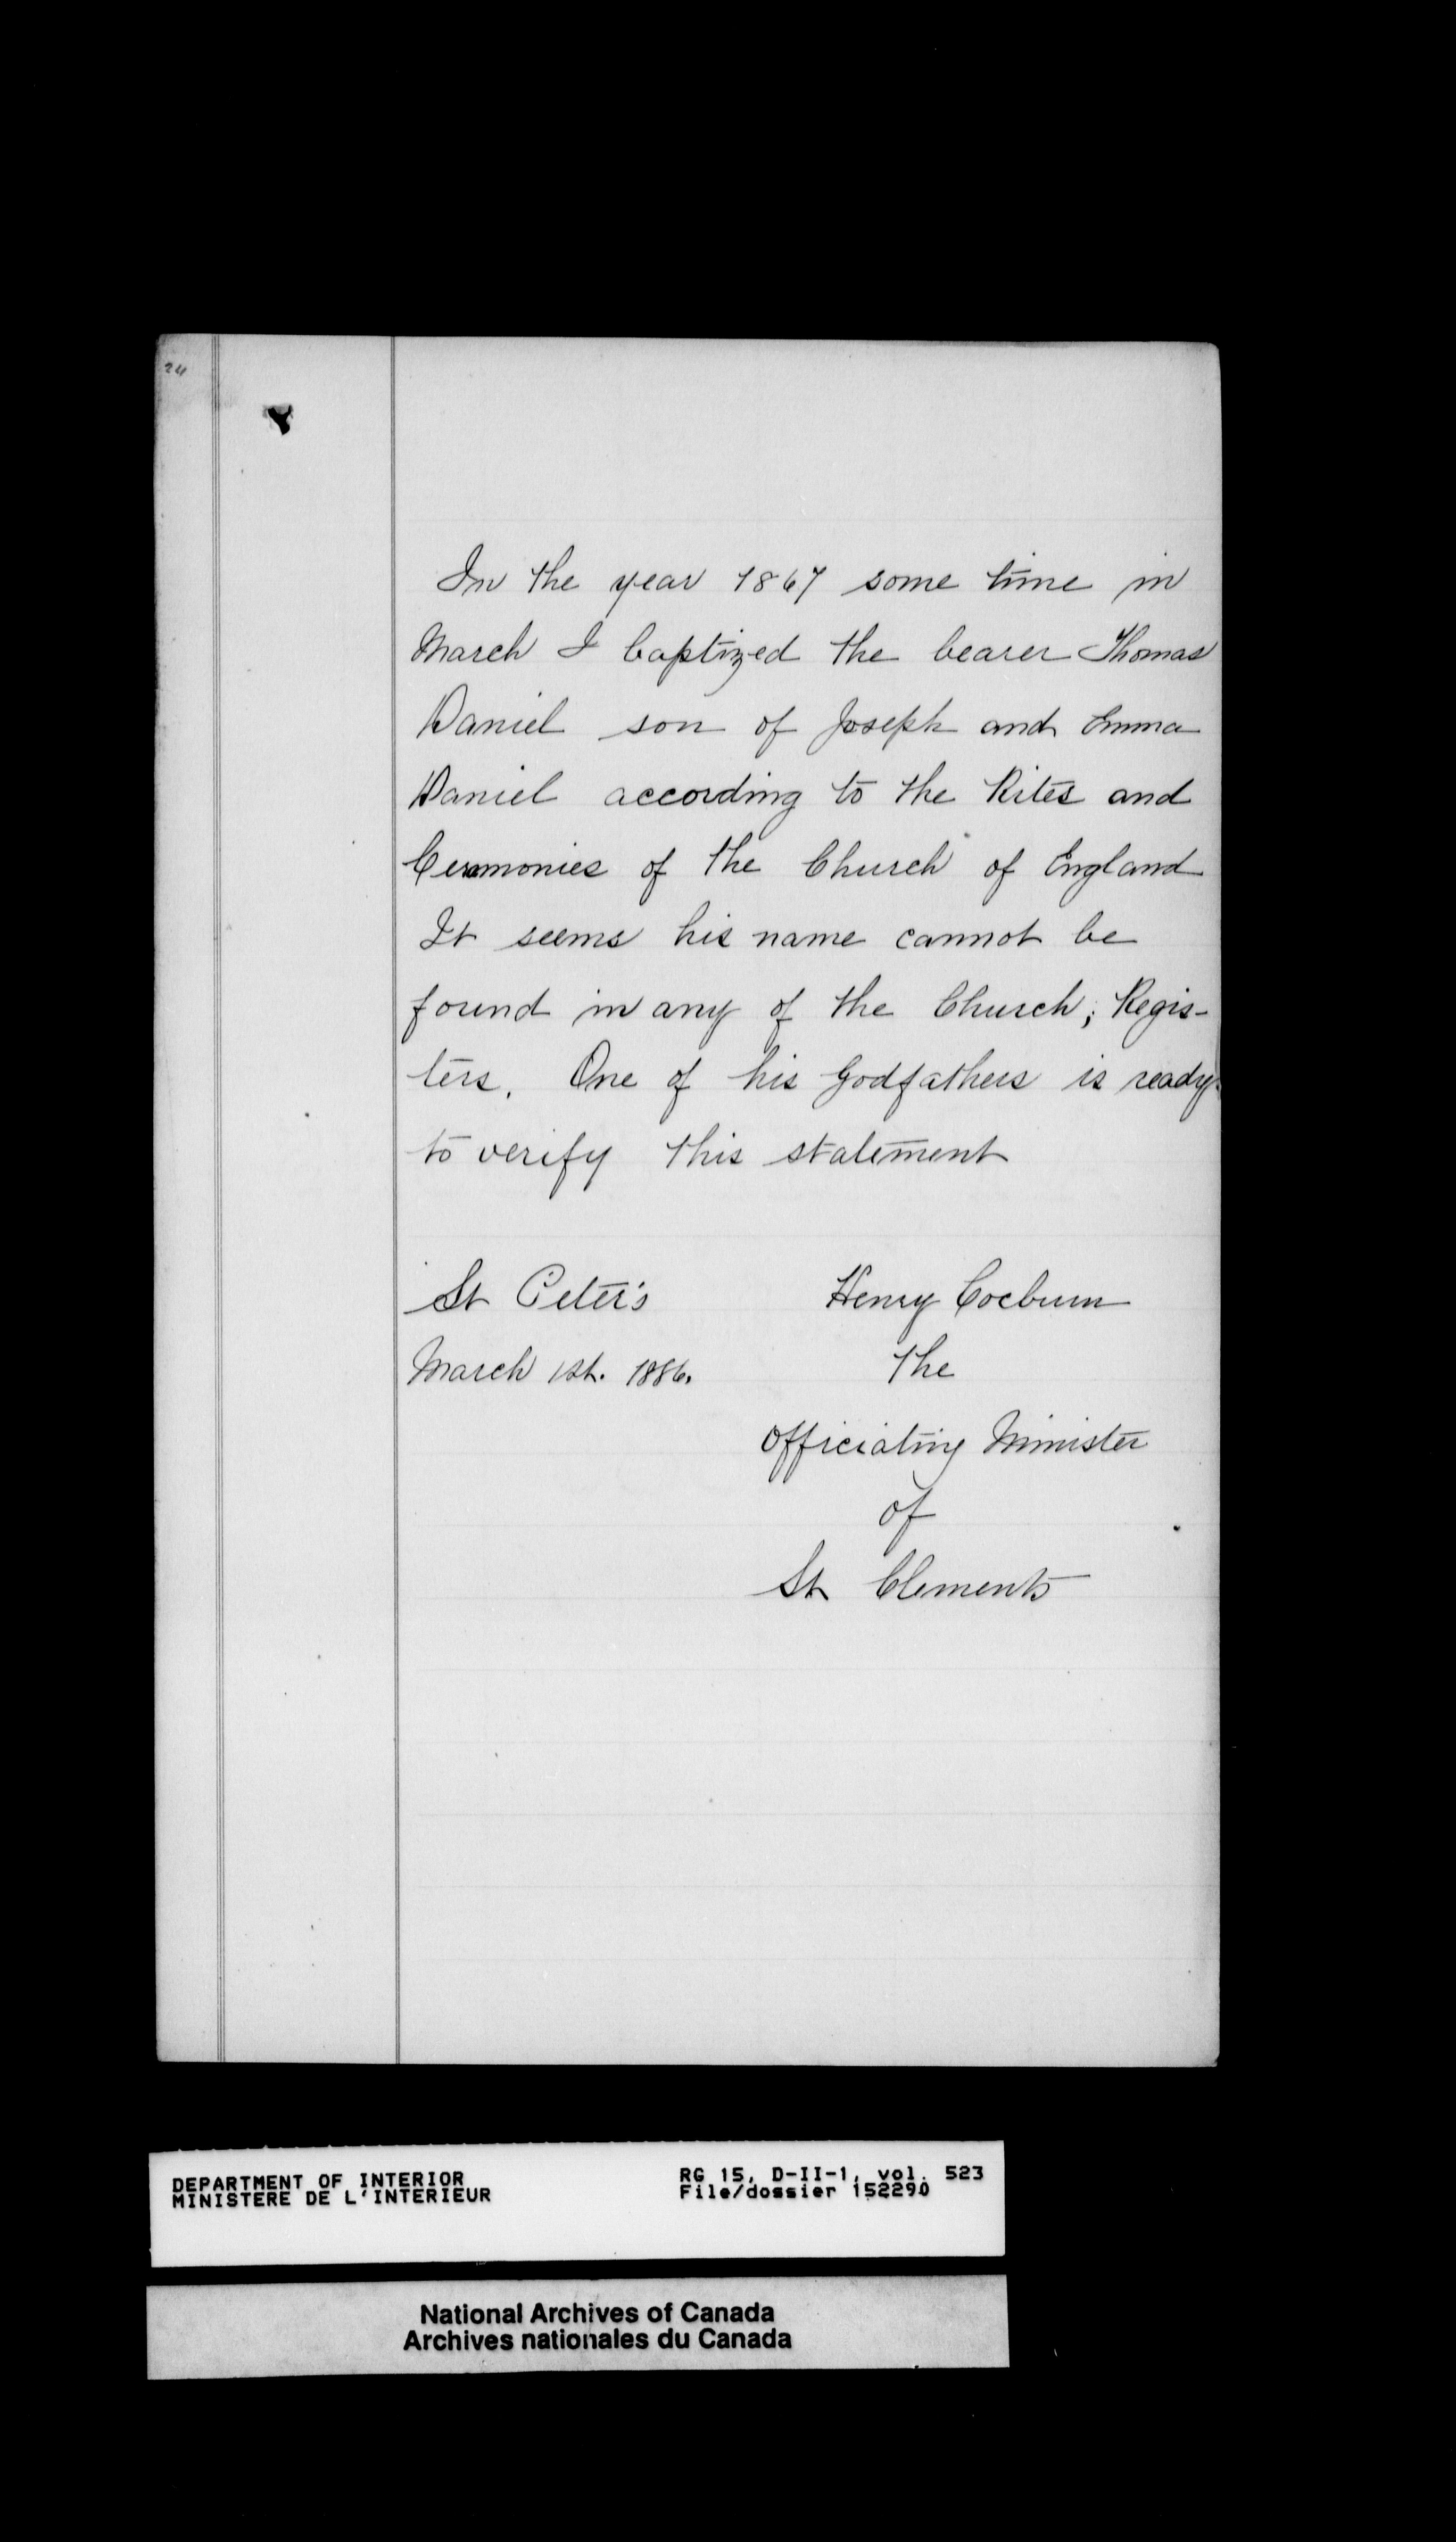 24
In the year 1867 some time in
March I baptized the bearer Thomas
Daniel son of Joseph and Emma
Daniel according to the Rites and
Ceremonies of the Church of England
It seems his name cannot be
found in any of the Church, Regis-
ters. One of his Godfathers is ready
to verify this statement
St Peter's Henry Cocburn
March 1st. 1886. The
officiating Minister
of
St Clements
DEPARTMENT OF INTERIOR RG 15, D-II-1, vol. 523
MINISTERE DE L'INTERIEUR File/dossier 152290
National Archives of Canada
Archives nationales du Canada